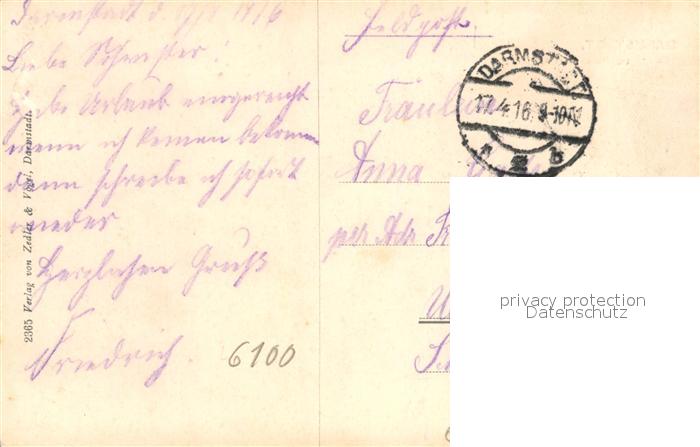 Darmstadt d. 1916
Liebe Schwester!
Habe Urlaub eingereicht
wenn ich keinen bekomme
dann schreibe ich sofort
wieder
Herzlichen Gruß
Friedrich.
6100
2365 Verlag von Zedler & Vogel, Darmstadt.
Feldpost.
DARMSTADT
17.4.16. 9-10N.
* 2 b
Fräulein
Anna
per Adr
U
privacy protection
Datenschutz